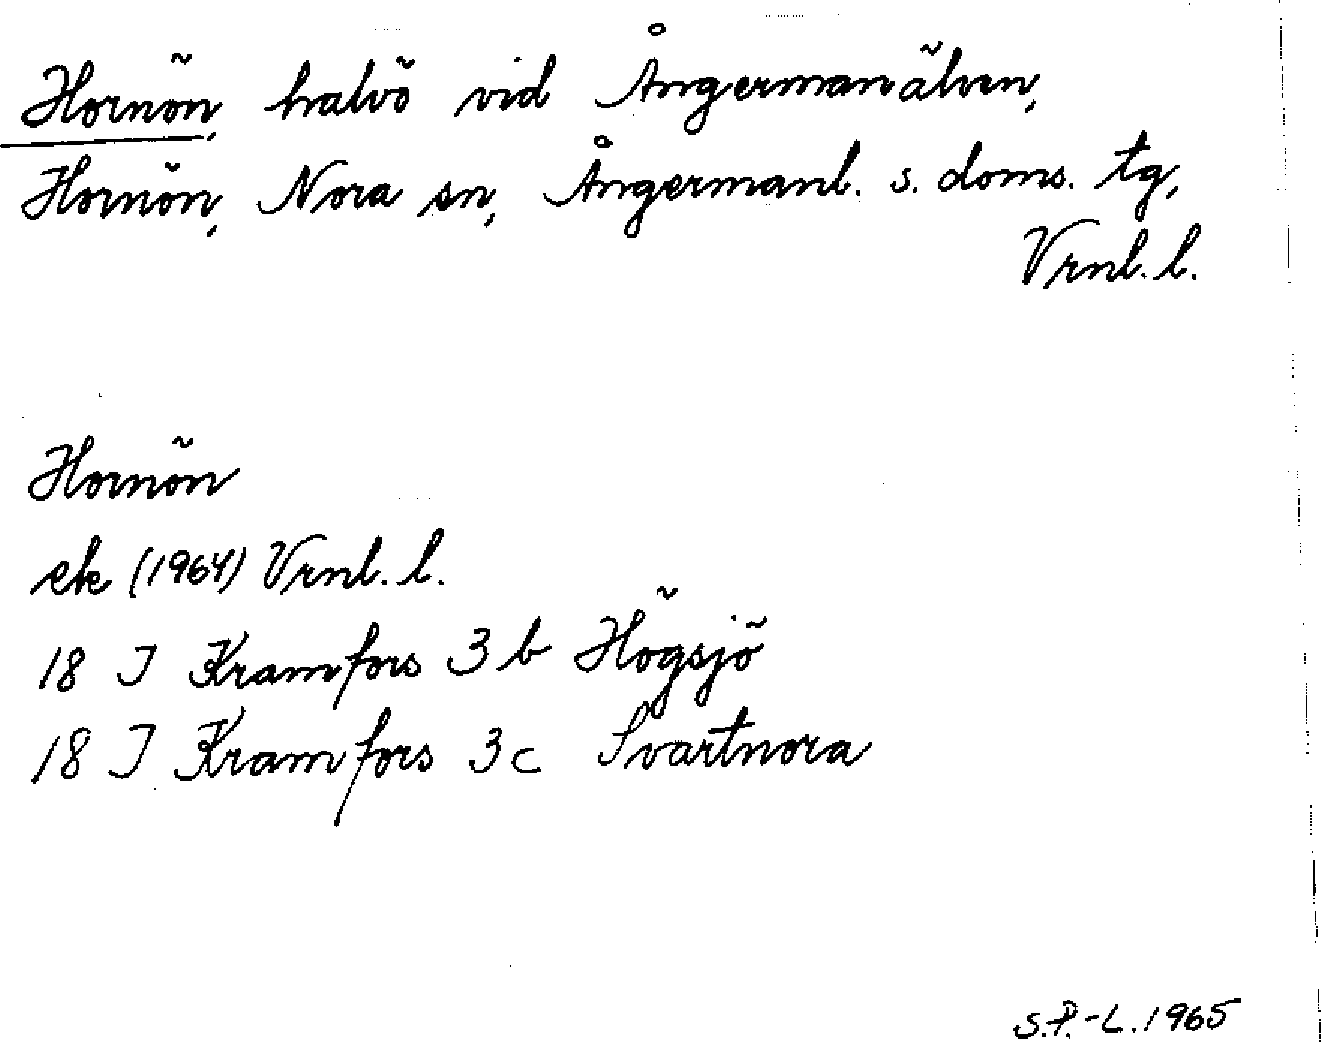 Hornön, halvö vid Ångermanälven,
Hornön, Nora sn, Ångermanl. s. doms. tg,
Vrnl. l.
Hornön
ek (1964) Vrnl. l.
18 I Kramfors 3 b Högsjö
18 I Kramfors 3 c Svartnora
S.P.-L. 1965